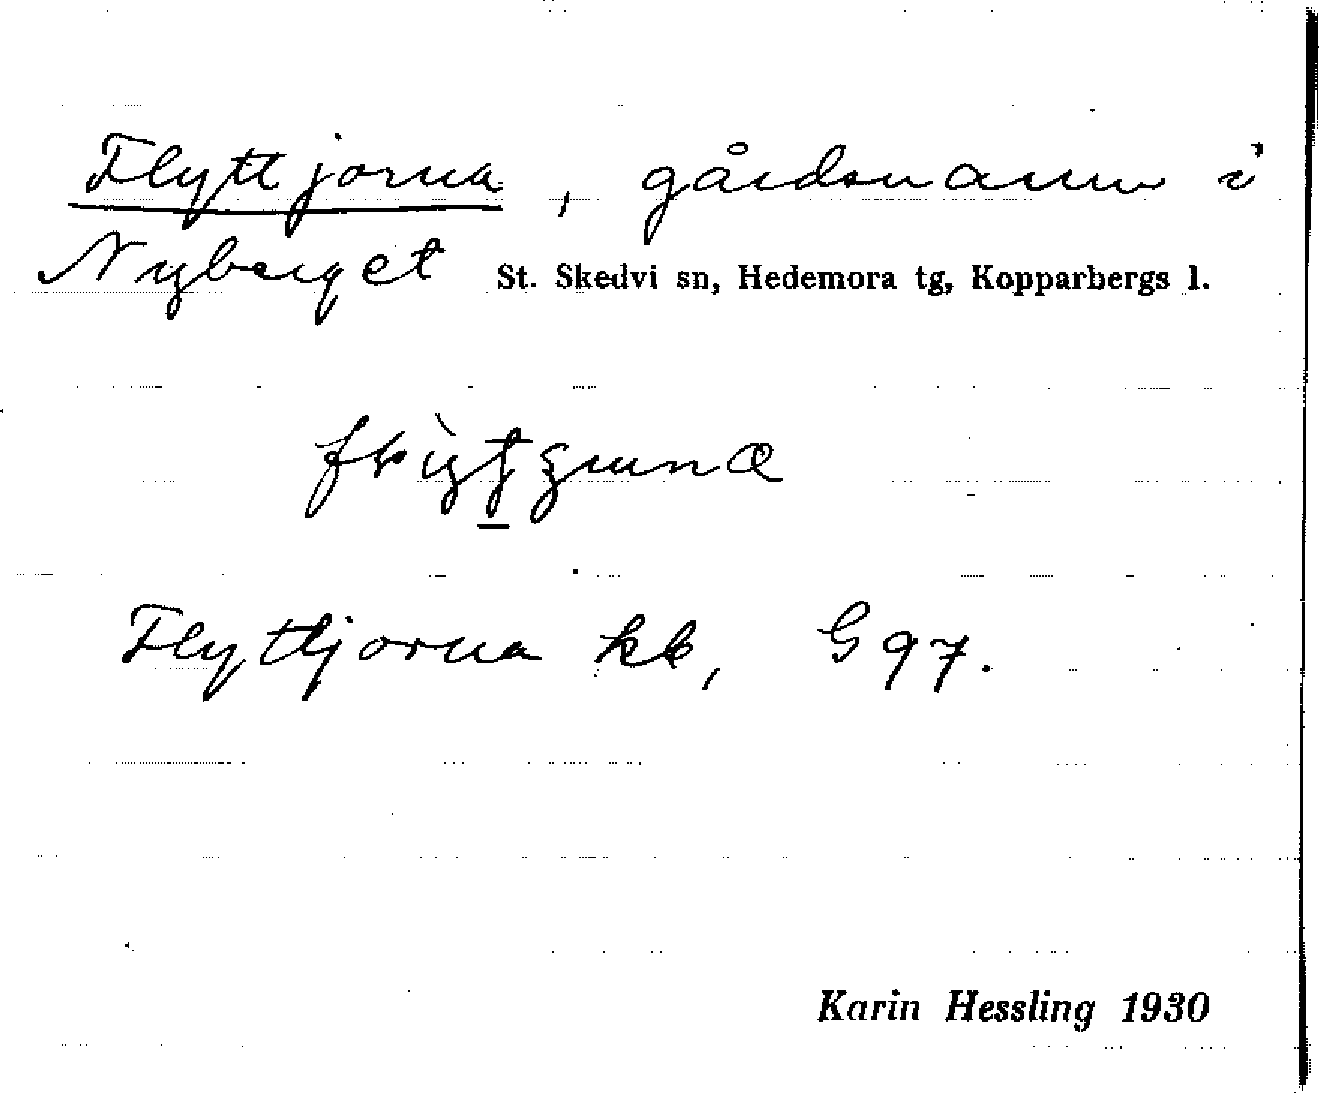 Flyttjorna, gårdsnamn i
Nyberget St. Skedvi sn, Hedemora tg, Kopparbergs l.
Flyttjorna kb, G 97.
Karin Hessling 1930